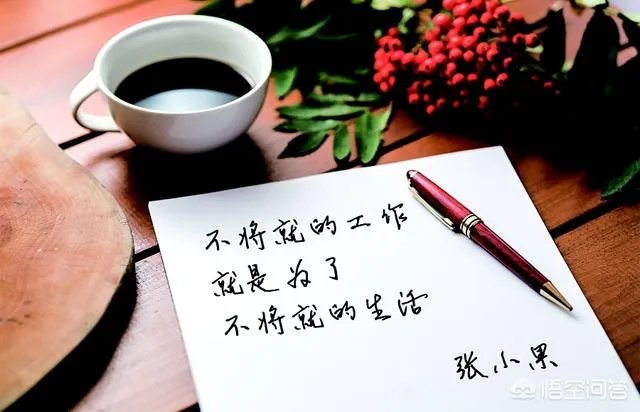 不将就的工作
就是为了
不将就的生活
张小果
悟空问答